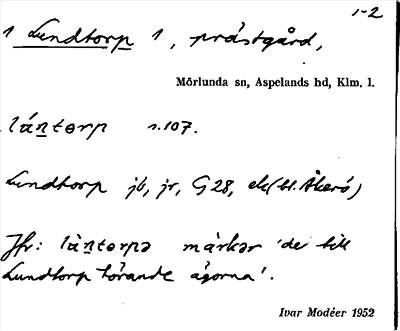 1-2
1 Lundtorp 1, prästgård,
Mörlunda sn, Aspelands hd, Klm. l.
lántorp s. 107.
Lundtorp jb, jr, G 28, ek (bl. Åkerö)
Jfr: làntorpə márkər 'de till
Lundtorp hörande ägorna'.
Ivar Modéer 1952